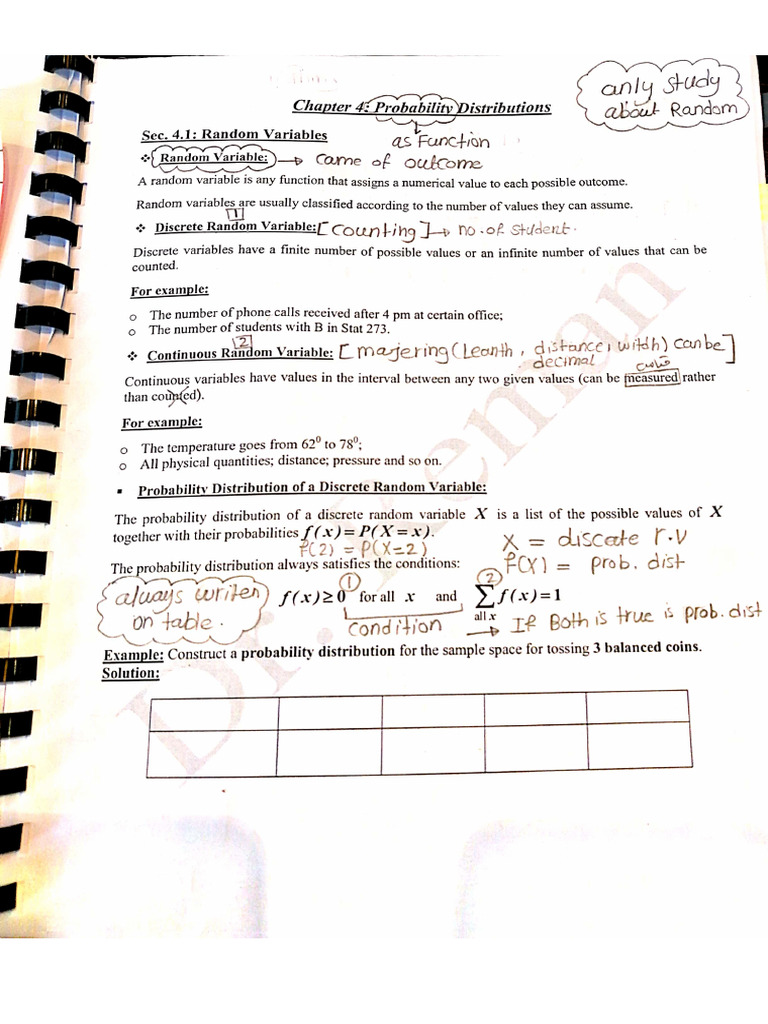 only study
about Random
Chapter 4: Probability Distributions
Sec. 4.1: Random Variables
as Function
❖ Random Variable: → came of outcome
A random variable is any function that assigns a numerical value to each possible outcome.
Random variables are usually classified according to the number of values they can assume.
1
❖ Discrete Random Variable: [counting] → no. of student.
Discrete variables have a finite number of possible values or an infinite number of values that can be
counted.
For example:
o The number of phone calls received after 4 pm at certain office;
o The number of students with B in Stat 273.
2
❖ Continuous Random Variable: [majering (Leanth, distance, witdh) can be]
decimal
Continuous variables have values in the interval between any two given values (can be measured rather
than counted).
For example:
o The temperature goes from 62⁰ to 78⁰;
o All physical quantities; distance; pressure and so on.
▪ Probability Distribution of a Discrete Random Variable:
The probability distribution of a discrete random variable X is a list of the possible values of X
together with their probabilities f(x)=P(X=x).
f(2) = P(X=2)
X = discate r.v
The probability distribution always satisfies the conditions:
f(X) = prob. dist
always writen
on table.
① ②
f(x)≥0 for all x and ∑f(x)=1
all x
condition
→ If Both is true is prob. dist
Example: Construct a probability distribution for the sample space for tossing 3 balanced coins.
Solution:
Dr. Keman